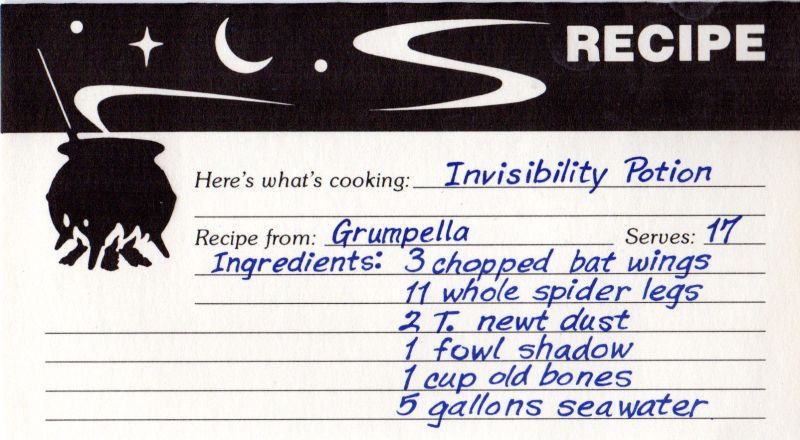 RECIPE
Here's what's cooking: Invisibility Potion
Recipe from: Grumpella Serves: 17
Ingredients: 3 chopped bat wings
11 whole spider legs
2 T. newt dust
1 fowl shadow
1 cup old bones
5 gallons seawater